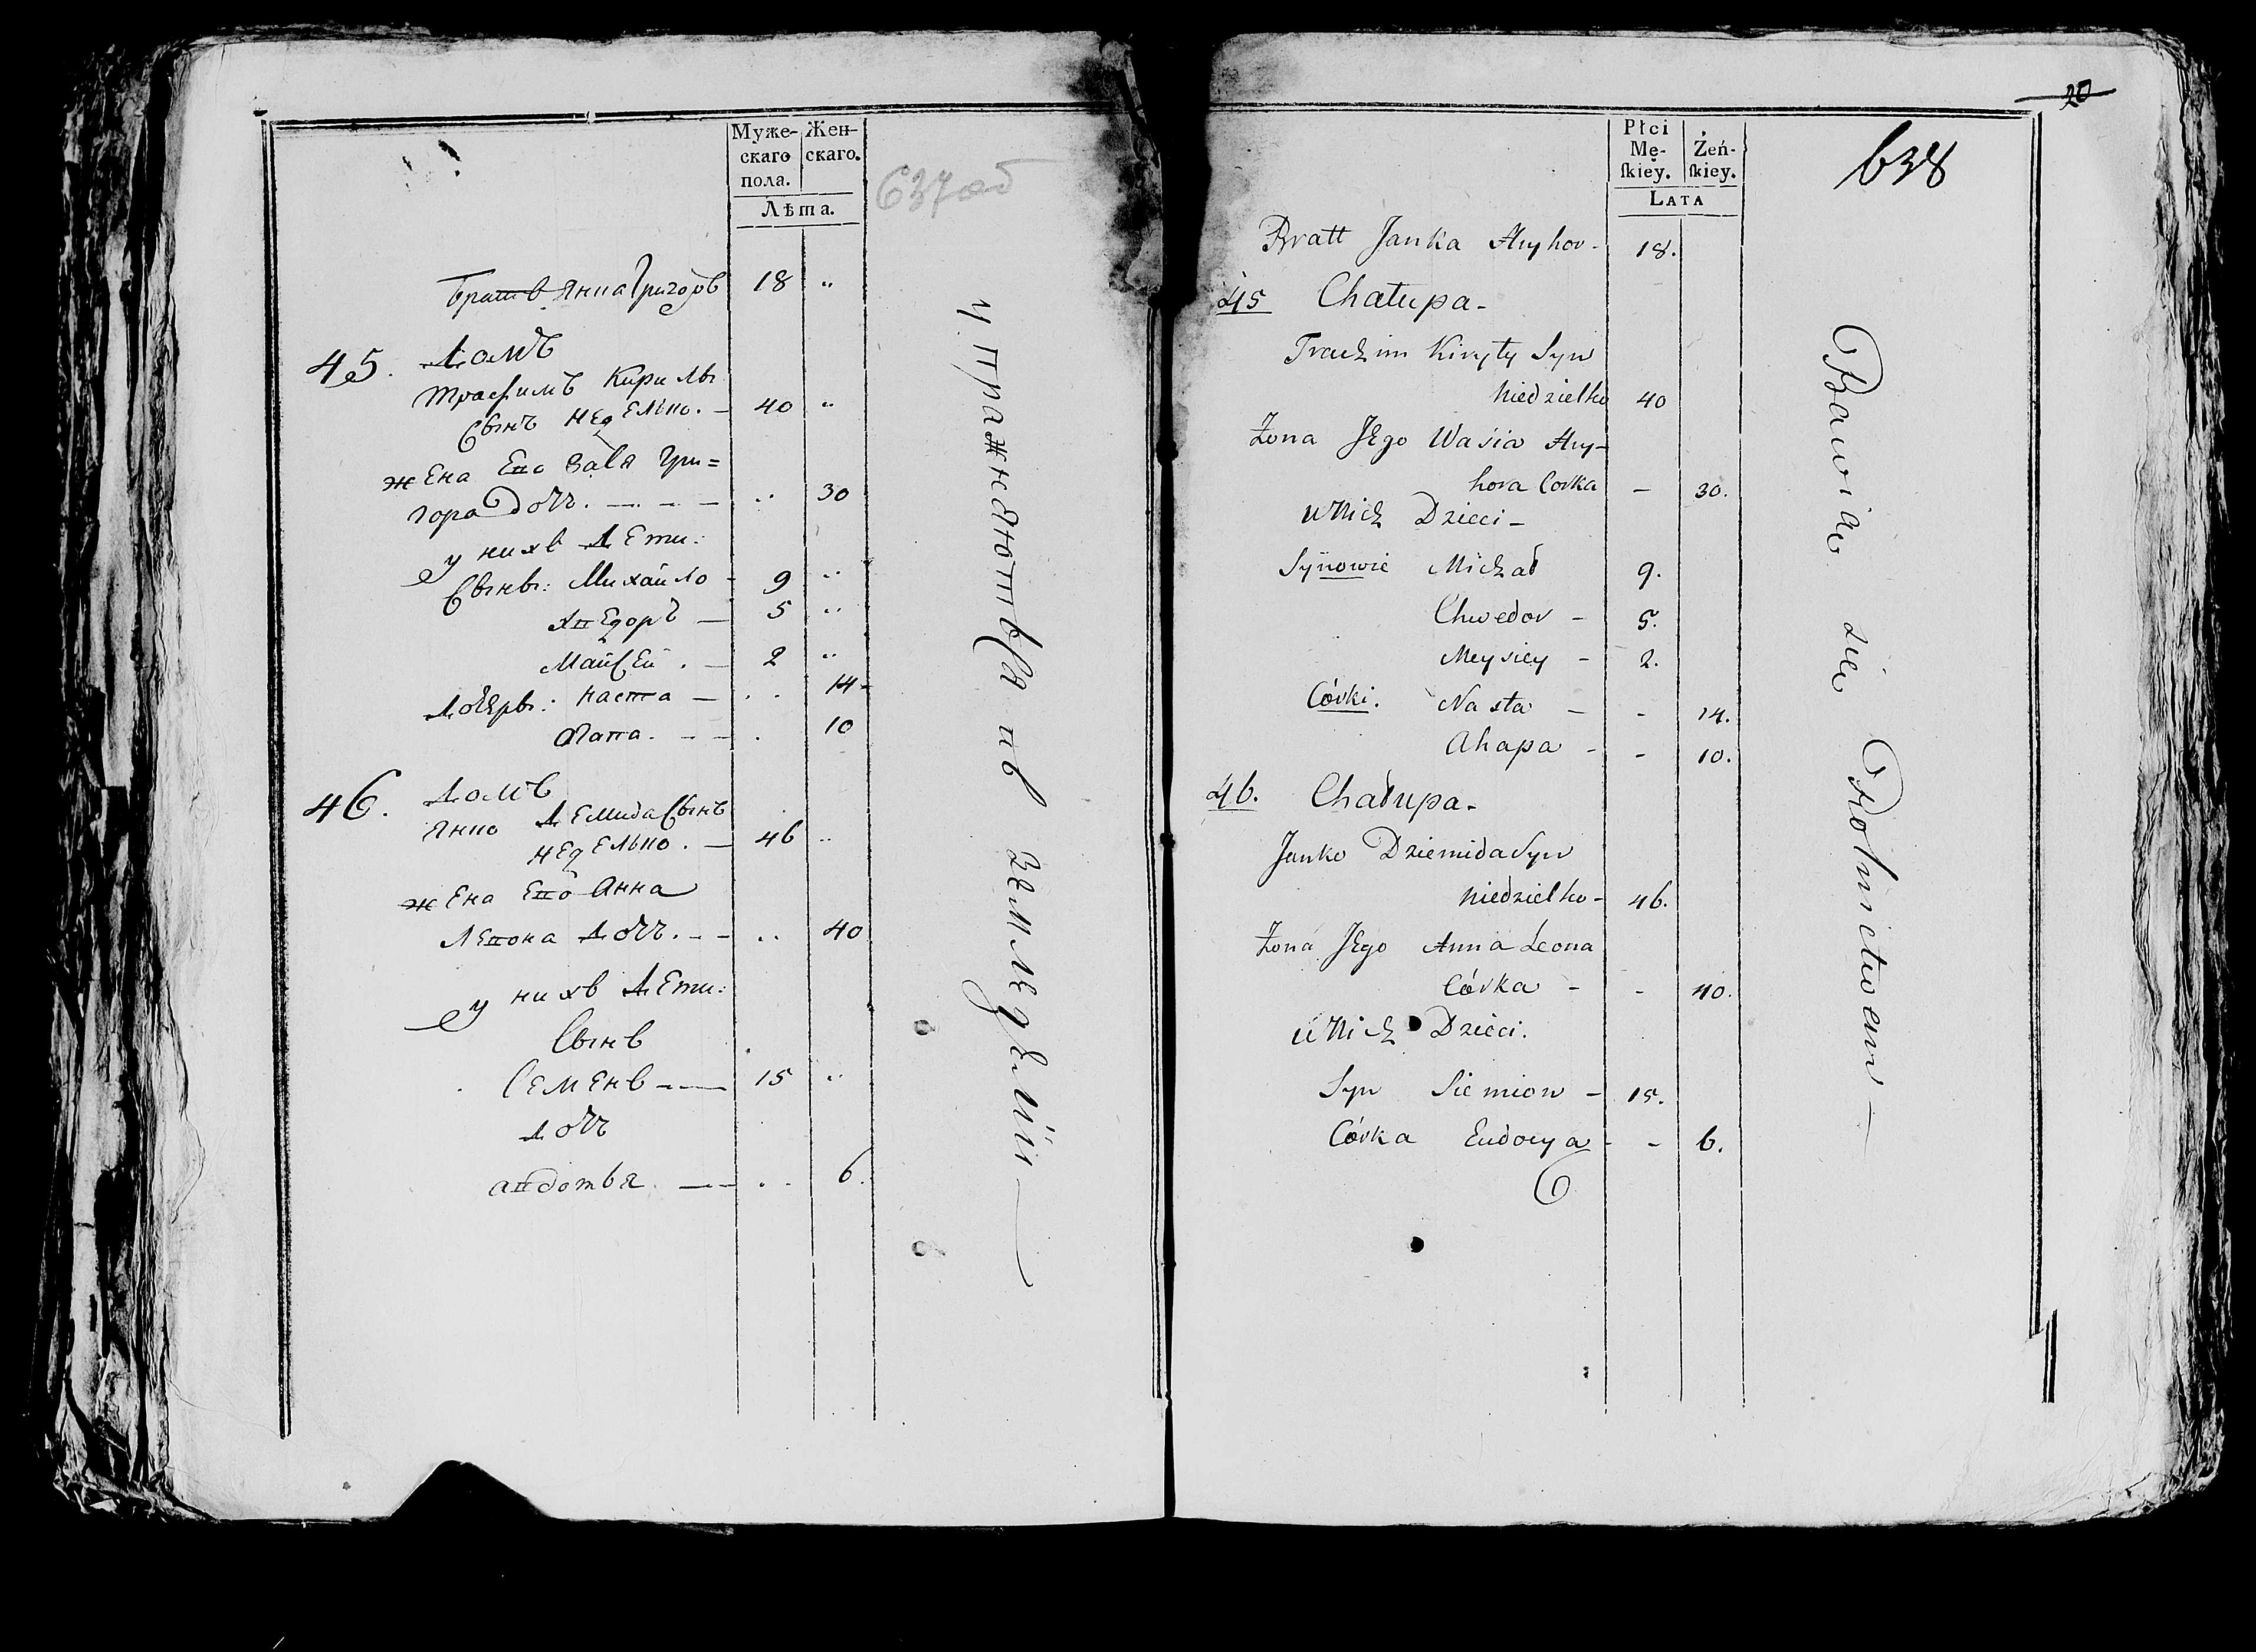 Муже-
скаго
пола.
Жен-
скаго.
Лѣта.
637об
Братъ Янка Григоръ 18 "
45. Домъ
Трафимъ Кирилы
Сынъ Неделко. — 40 "
жена Его Вася Гри=
гора Дочь. — — — " 30
у нихъ Дети:
Сыны: Михайло - 9 "
Хведоръ — 5 "
Майсей. — 2 "
Дочеры: Наста — . . 14 -
Агапа. - — . 10
46. Домъ
Янко Демида Сынъ
Неделко. — 46 "
жена Его Анна
Левона Дочь. - - . . 40
у нихъ Дети:
Сынъ
Семенъ — — 15 "
Дочь
Авдотья. — — . . 6.
упражняются въ земледѣлии —
20
638
Płci
Mę-
ſkiey.
Żeń-
ſkiey.
LATA
Bratt Janka Hryhor - 18.
45 Chałupa -
Trachim Kiryły Syn
Niedzielko 40
Żona Jego Wasia Hry-
hora Corka - 30.
u Nich Dzieci -
Synowie Michał 9.
Chwedor - 5.
Meysiey - 2.
Córki. Nasta - - 14.
Ahapa - - 10.
46. Chałupa -
Janko Dziemida Syn
Niedzielko - 46.
Żona Jego Anna Leona
Córka - - 40.
u Nich Dzieci.
Syn Siemion - 15.
Córka Eudocya - - 6.
Bawią się Rolnictwem —